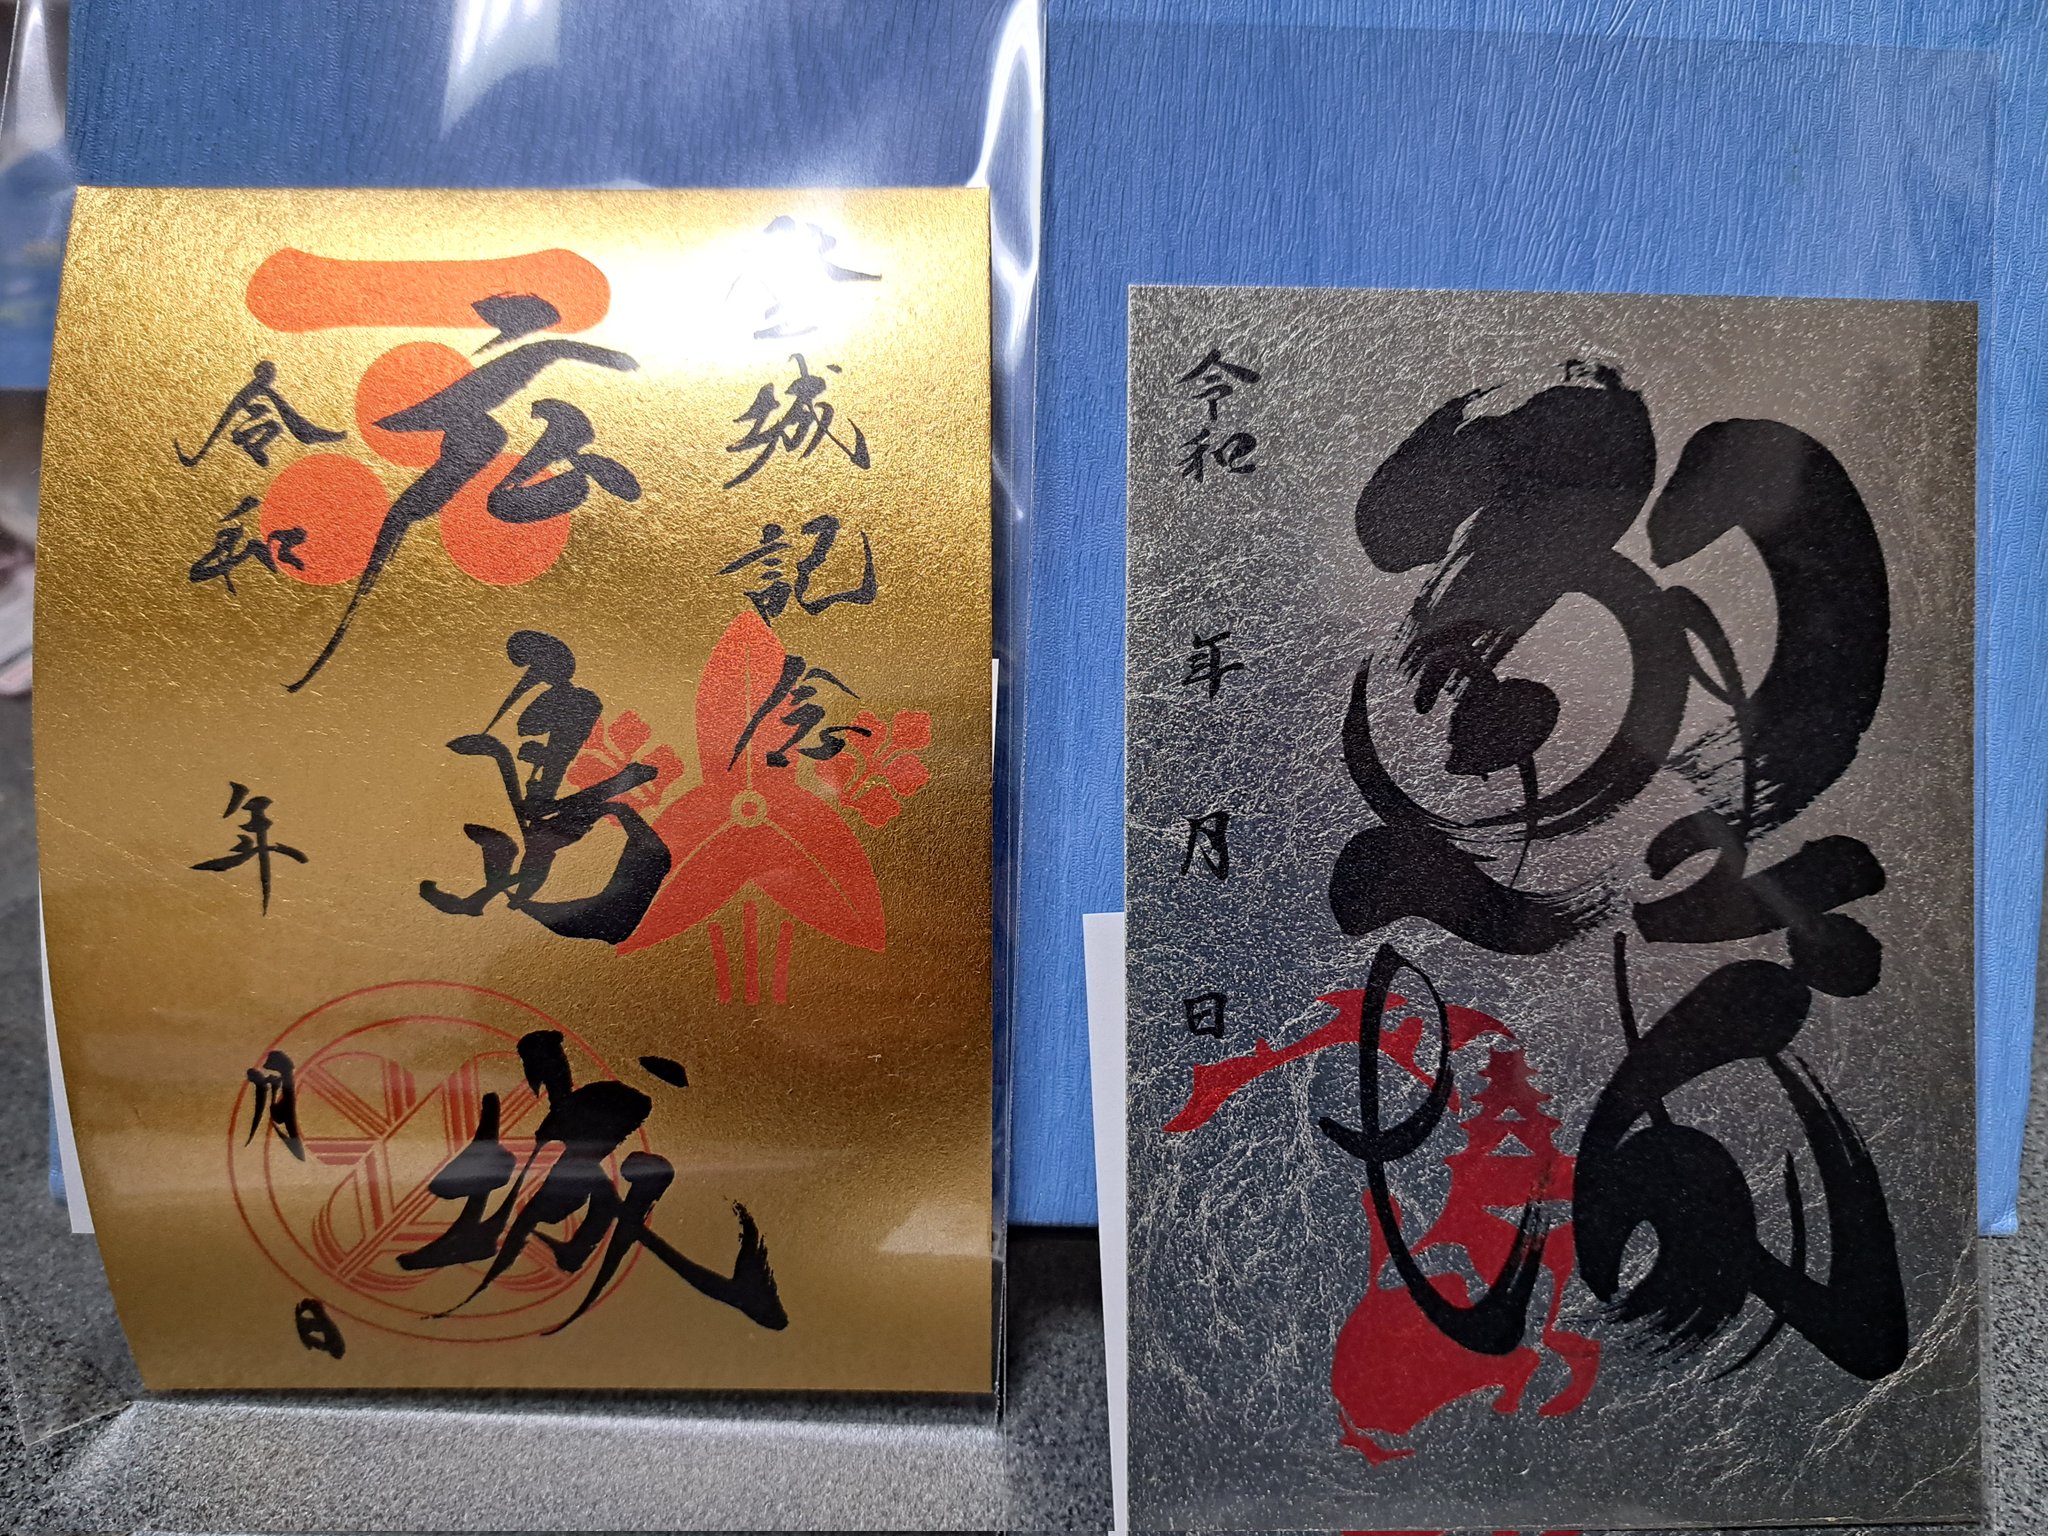 登城記念
広島城
令和 年 月 日
令和 年 月 日